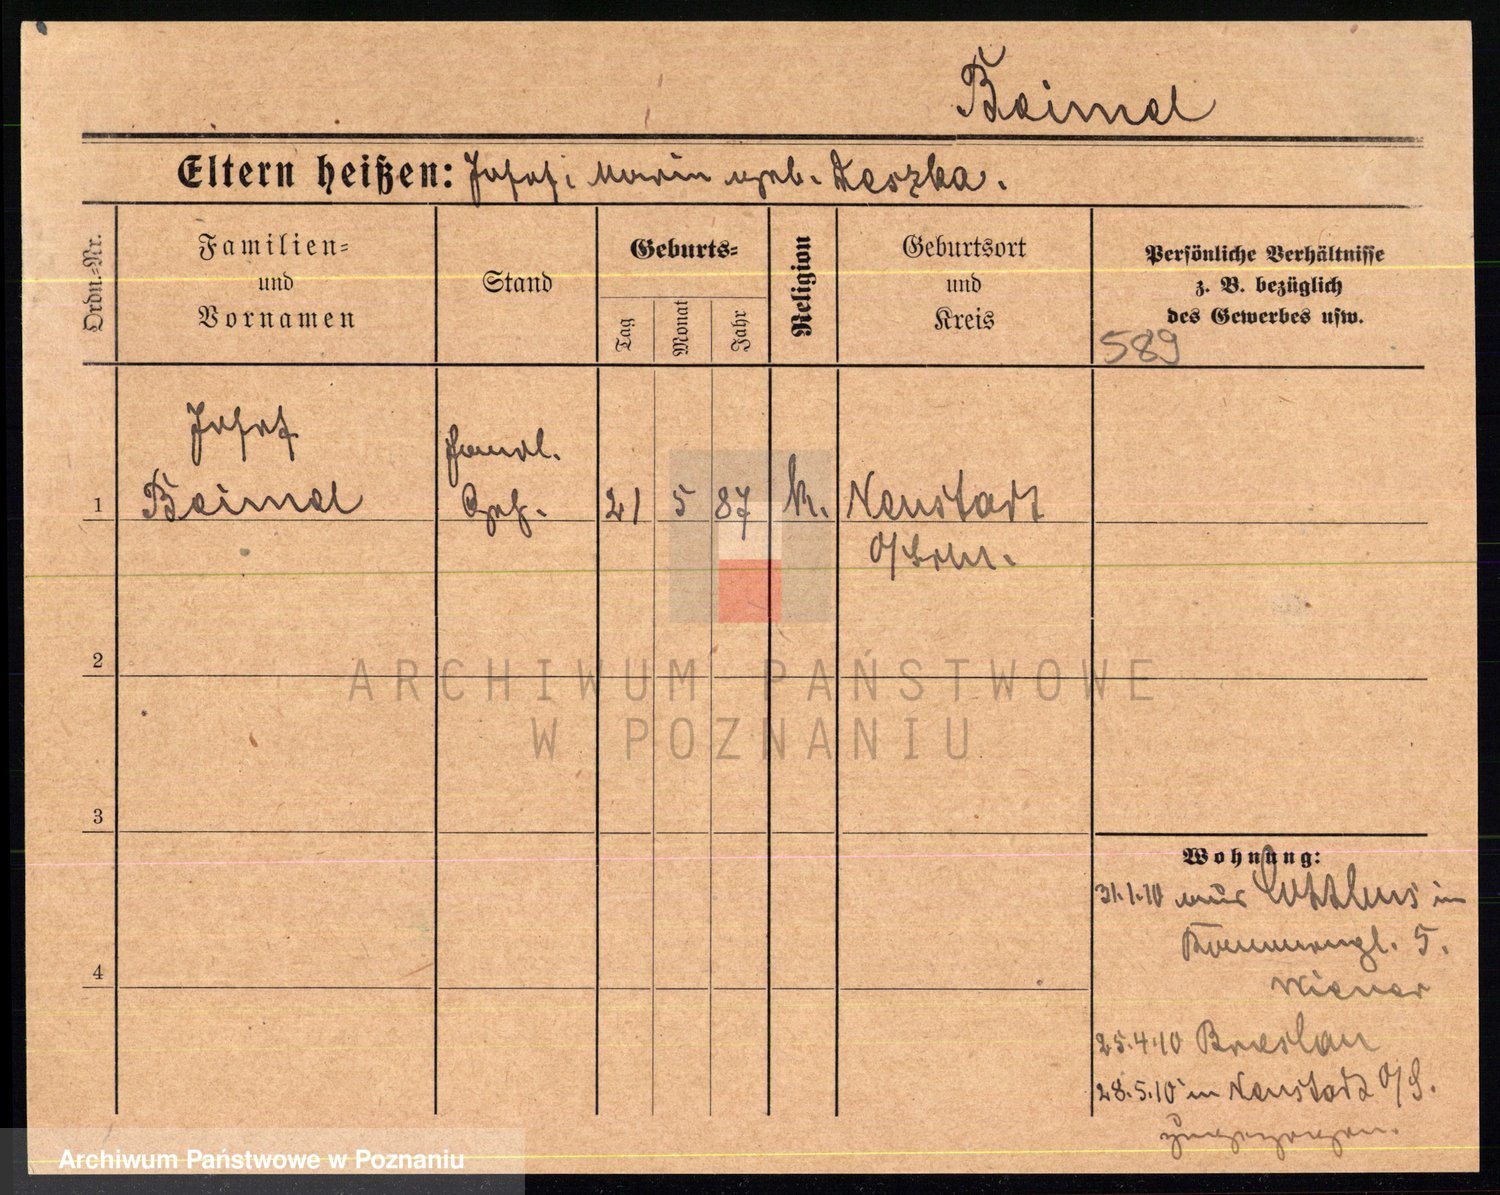 Beimel
Eltern heißen: Josef i Marie geb. Leszka.
Ordn.=Nr.
Familien=
und
Vornamen
Stand
Geburts=
Tag
Monat
Jahr
Religion
Geburtsort
und
Kreis
Persönliche Verhältnisse
z. B. bezüglich
des Gewerbes usw.
589
Josef
Handl.
1 Beimel Geh. 21 5 87 k. Neustadt
O/Schl.
2
ARCHIWUM PAŃSTWOWE
W POZNANIU
3
Wohnung:
31.1.10 aus Cottbus in
5.
Wiener
4
25.4.10 Breslau
28.5.10 in Neustadt O/S.
zugezogen.
Archiwum Państwowe w Poznaniu